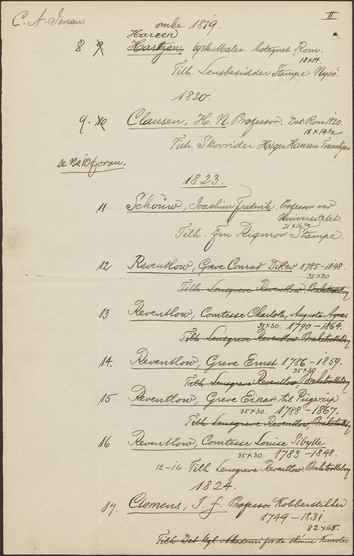 C. A. Jensen
omkr 1819. II
Hansen
8 Hansen, tegnet Rom.
18 x 14.
Tilh. Lensbesidder Stampe Nysö
1820.
9. Clausen, H. N. Professor. Rom 1820.
Tilh. Skovrider Holger Hansen
1823.
11 Schouw, Joachim Frederik. Professor ved
Universitetet
Tilh. Frn Rigmor Stampe.
12 Reventlow, Greve Conrad Ditlev 1785-1848.
25 x 20
Tilh. Lensgreve Reventlow, Brahetrolleborg
13 Reventlow, Comtesse Charlotte, Augusta Agnes
25 x 20. 1790-1864.
Tilh. Lensgreve Reventlow, Brahetrolleborg
14. Reventlow, Greve Ernst 1786-1859.
25 x 20.
Tilh. Lensgreve Reventlow, Brahetrolleborg
15 Reventlow, Greve Einar
25 x 20. 1788-1867.
Tilh. Lensgreve Reventlow, Brahetrolleborg
16 Reventlow, Comtesse Louise Sybille
25 x 20 1783-1848.
12-16 Tilh. Lensgreve Reventlow, Brahetrolleborg
1824.
17. Clemens, J. F. Professor Kobberstikker
1749-1831.
Tilh. Det kgl. Akademi for de skönne Kunster